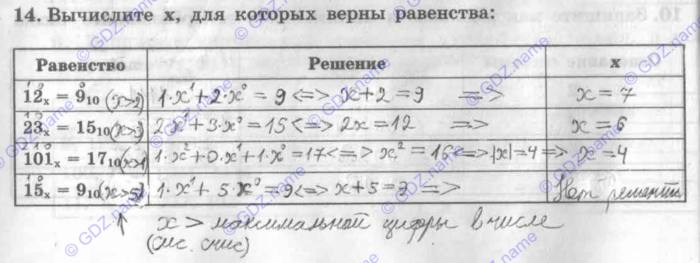 14. Вычислите x, для которых верны равенства:
Равенство Решение x
12ₓ = 9₁₀ (x>2) 1·x¹+2·x⁰ = 9 <=> x+2 = 9 => x = 7
23ₓ = 15₁₀ (x>3) 2·x¹+3·x⁰ = 15 <=> 2x = 12 => x = 6
101ₓ = 17₁₀ (x>1) 1·x²+0·x¹+1·x⁰ = 17 <=> x² = 16 <=> |x| = 4 => x = 4
15ₓ = 9₁₀ (x>5) 1·x¹+5·x⁰ = 9 <=> x+5 = 9 => Нет решений
↑ x > максимальной цифры в числе
(сис. счис)
© GDZ.name